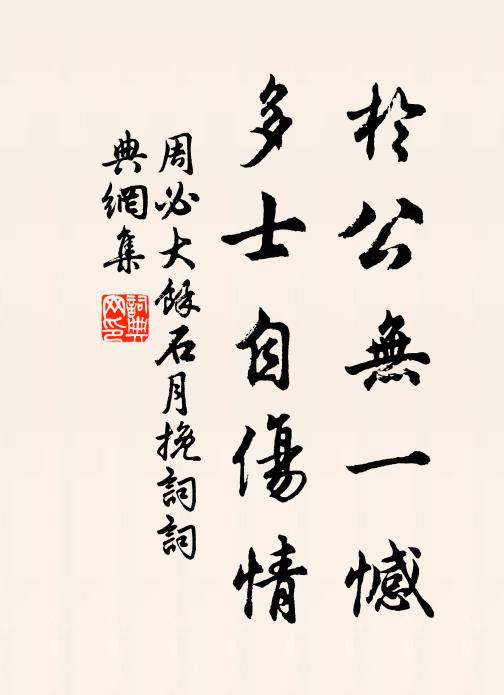 於公無一憾
多士自傷情
周必大餘石月挽詞詞
典網集
詞典網印